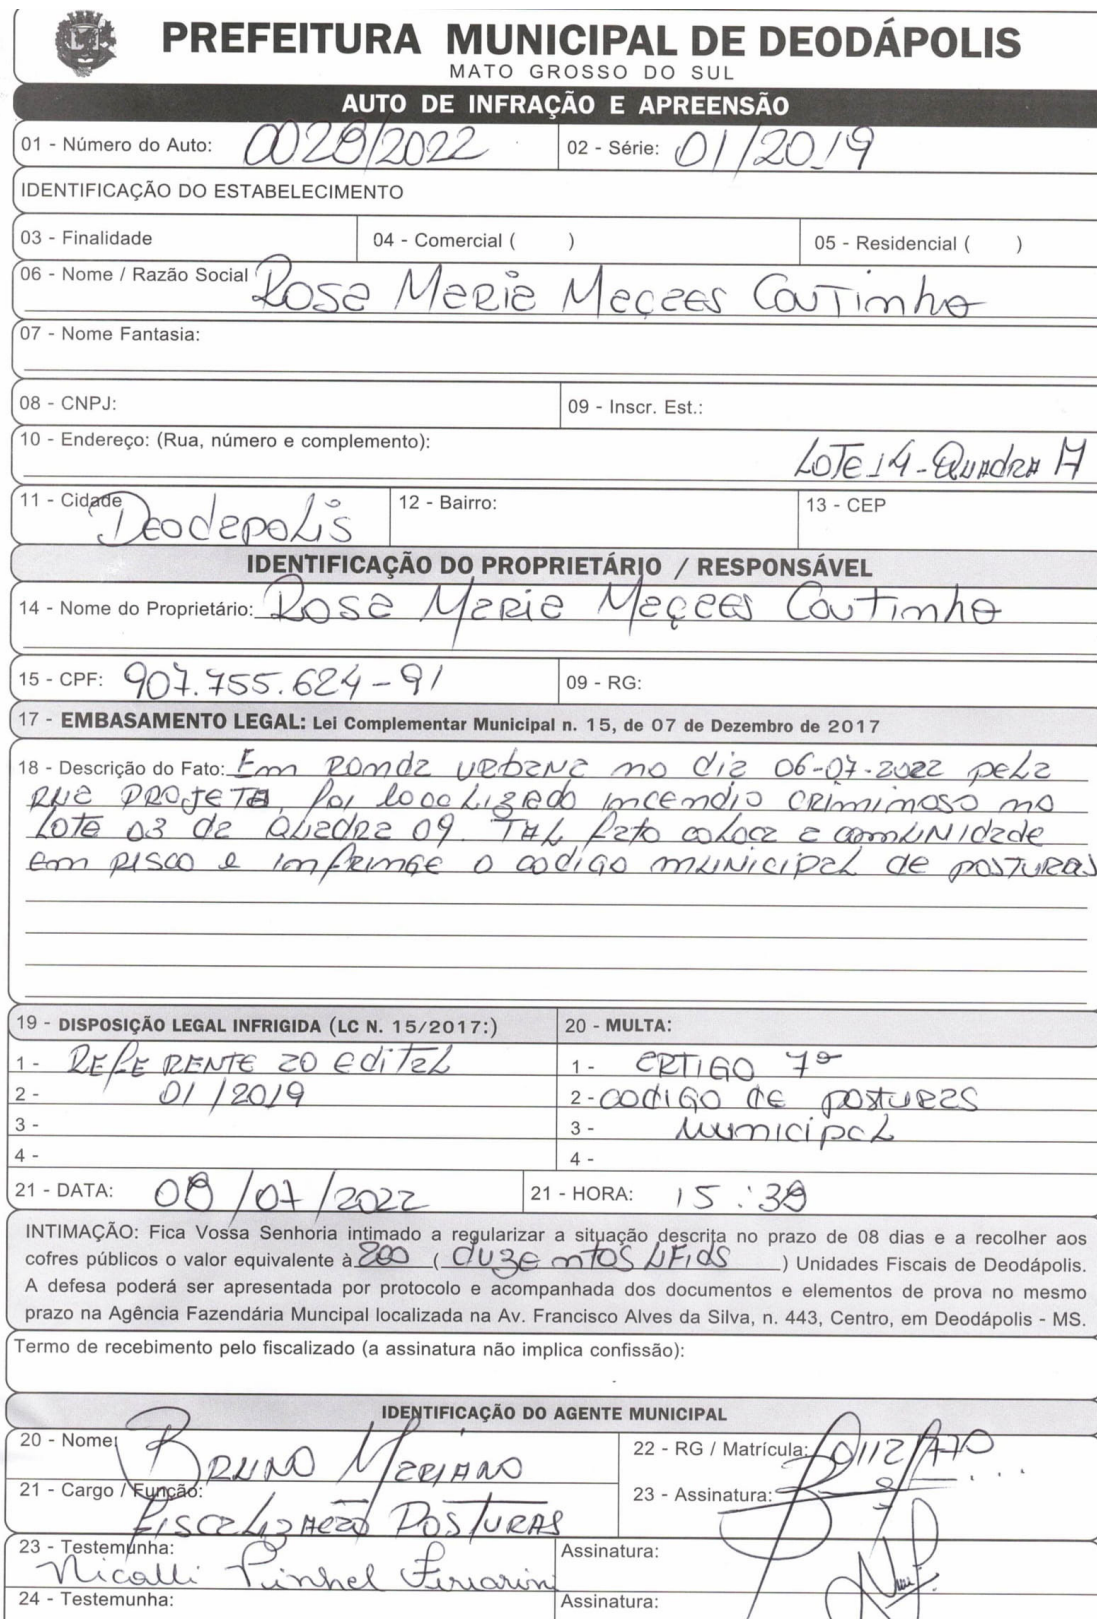 PREFEITURA MUNICIPAL DE DEODÁPOLIS
MATO GROSSO DO SUL
AUTO DE INFRAÇÃO E APREENSÃO
01 - Número do Auto: 0028/2022 02 - Série: 01/2019
IDENTIFICAÇÃO DO ESTABELECIMENTO
03 - Finalidade 04 - Comercial ( ) 05 - Residencial ( )
06 - Nome / Razão Social Rosa Maria Meçaes Coutinho
07 - Nome Fantasia:
08 - CNPJ: 09 - Inscr. Est.:
10 - Endereço: (Rua, número e complemento):
LOTE 14 - QUADRA A
11 - Cidade Deodapolis 12 - Bairro: 13 - CEP
IDENTIFICAÇÃO DO PROPRIETÁRIO / RESPONSÁVEL
14 - Nome do Proprietário: Rosa Maria Meçaes Coutinho
15 - CPF: 907.755.624-91 09 - RG:
17 - EMBASAMENTO LEGAL: Lei Complementar Municipal n. 15, de 07 de Dezembro de 2017
18 - Descrição do Fato: Em ronda urbana no dia 06-07-2022 pela
rua PROJETA, foi localizado incendio criminoso no
Lote 03 da quadra 09. TAL fato coloca a comunidade
em risco e infringe o codigo municipal de posturas
19 - DISPOSIÇÃO LEGAL INFRIGIDA (LC N. 15/2017:) 20 - MULTA:
1 - REFERENTE ao edital 1 - ARTIGO 7º
2 - 01/2019 2 - codigo de posturas
3 - 3 - municipal
4 - 4 -
21 - DATA: 08/07/2022 21 - HORA: 15:38
INTIMAÇÃO: Fica Vossa Senhoria intimado a regularizar a situação descrita no prazo de 08 dias e a recolher aos
cofres públicos o valor equivalente à 200 ( duzentos UFIDS ) Unidades Fiscais de Deodápolis.
A defesa poderá ser apresentada por protocolo e acompanhada dos documentos e elementos de prova no mesmo
prazo na Agência Fazendária Muncipal localizada na Av. Francisco Alves da Silva, n. 443, Centro, em Deodápolis - MS.
Termo de recebimento pelo fiscalizado (a assinatura não implica confissão):
IDENTIFICAÇÃO DO AGENTE MUNICIPAL
20 - Nome: BRUNO Mariano 22 - RG / Matrícula:
21 - Cargo / Função: Fiscalização POSTURAS 23 - Assinatura:
23 - Testemunha: Nicalli Pinhel Assinatura:
24 - Testemunha: Assinatura: